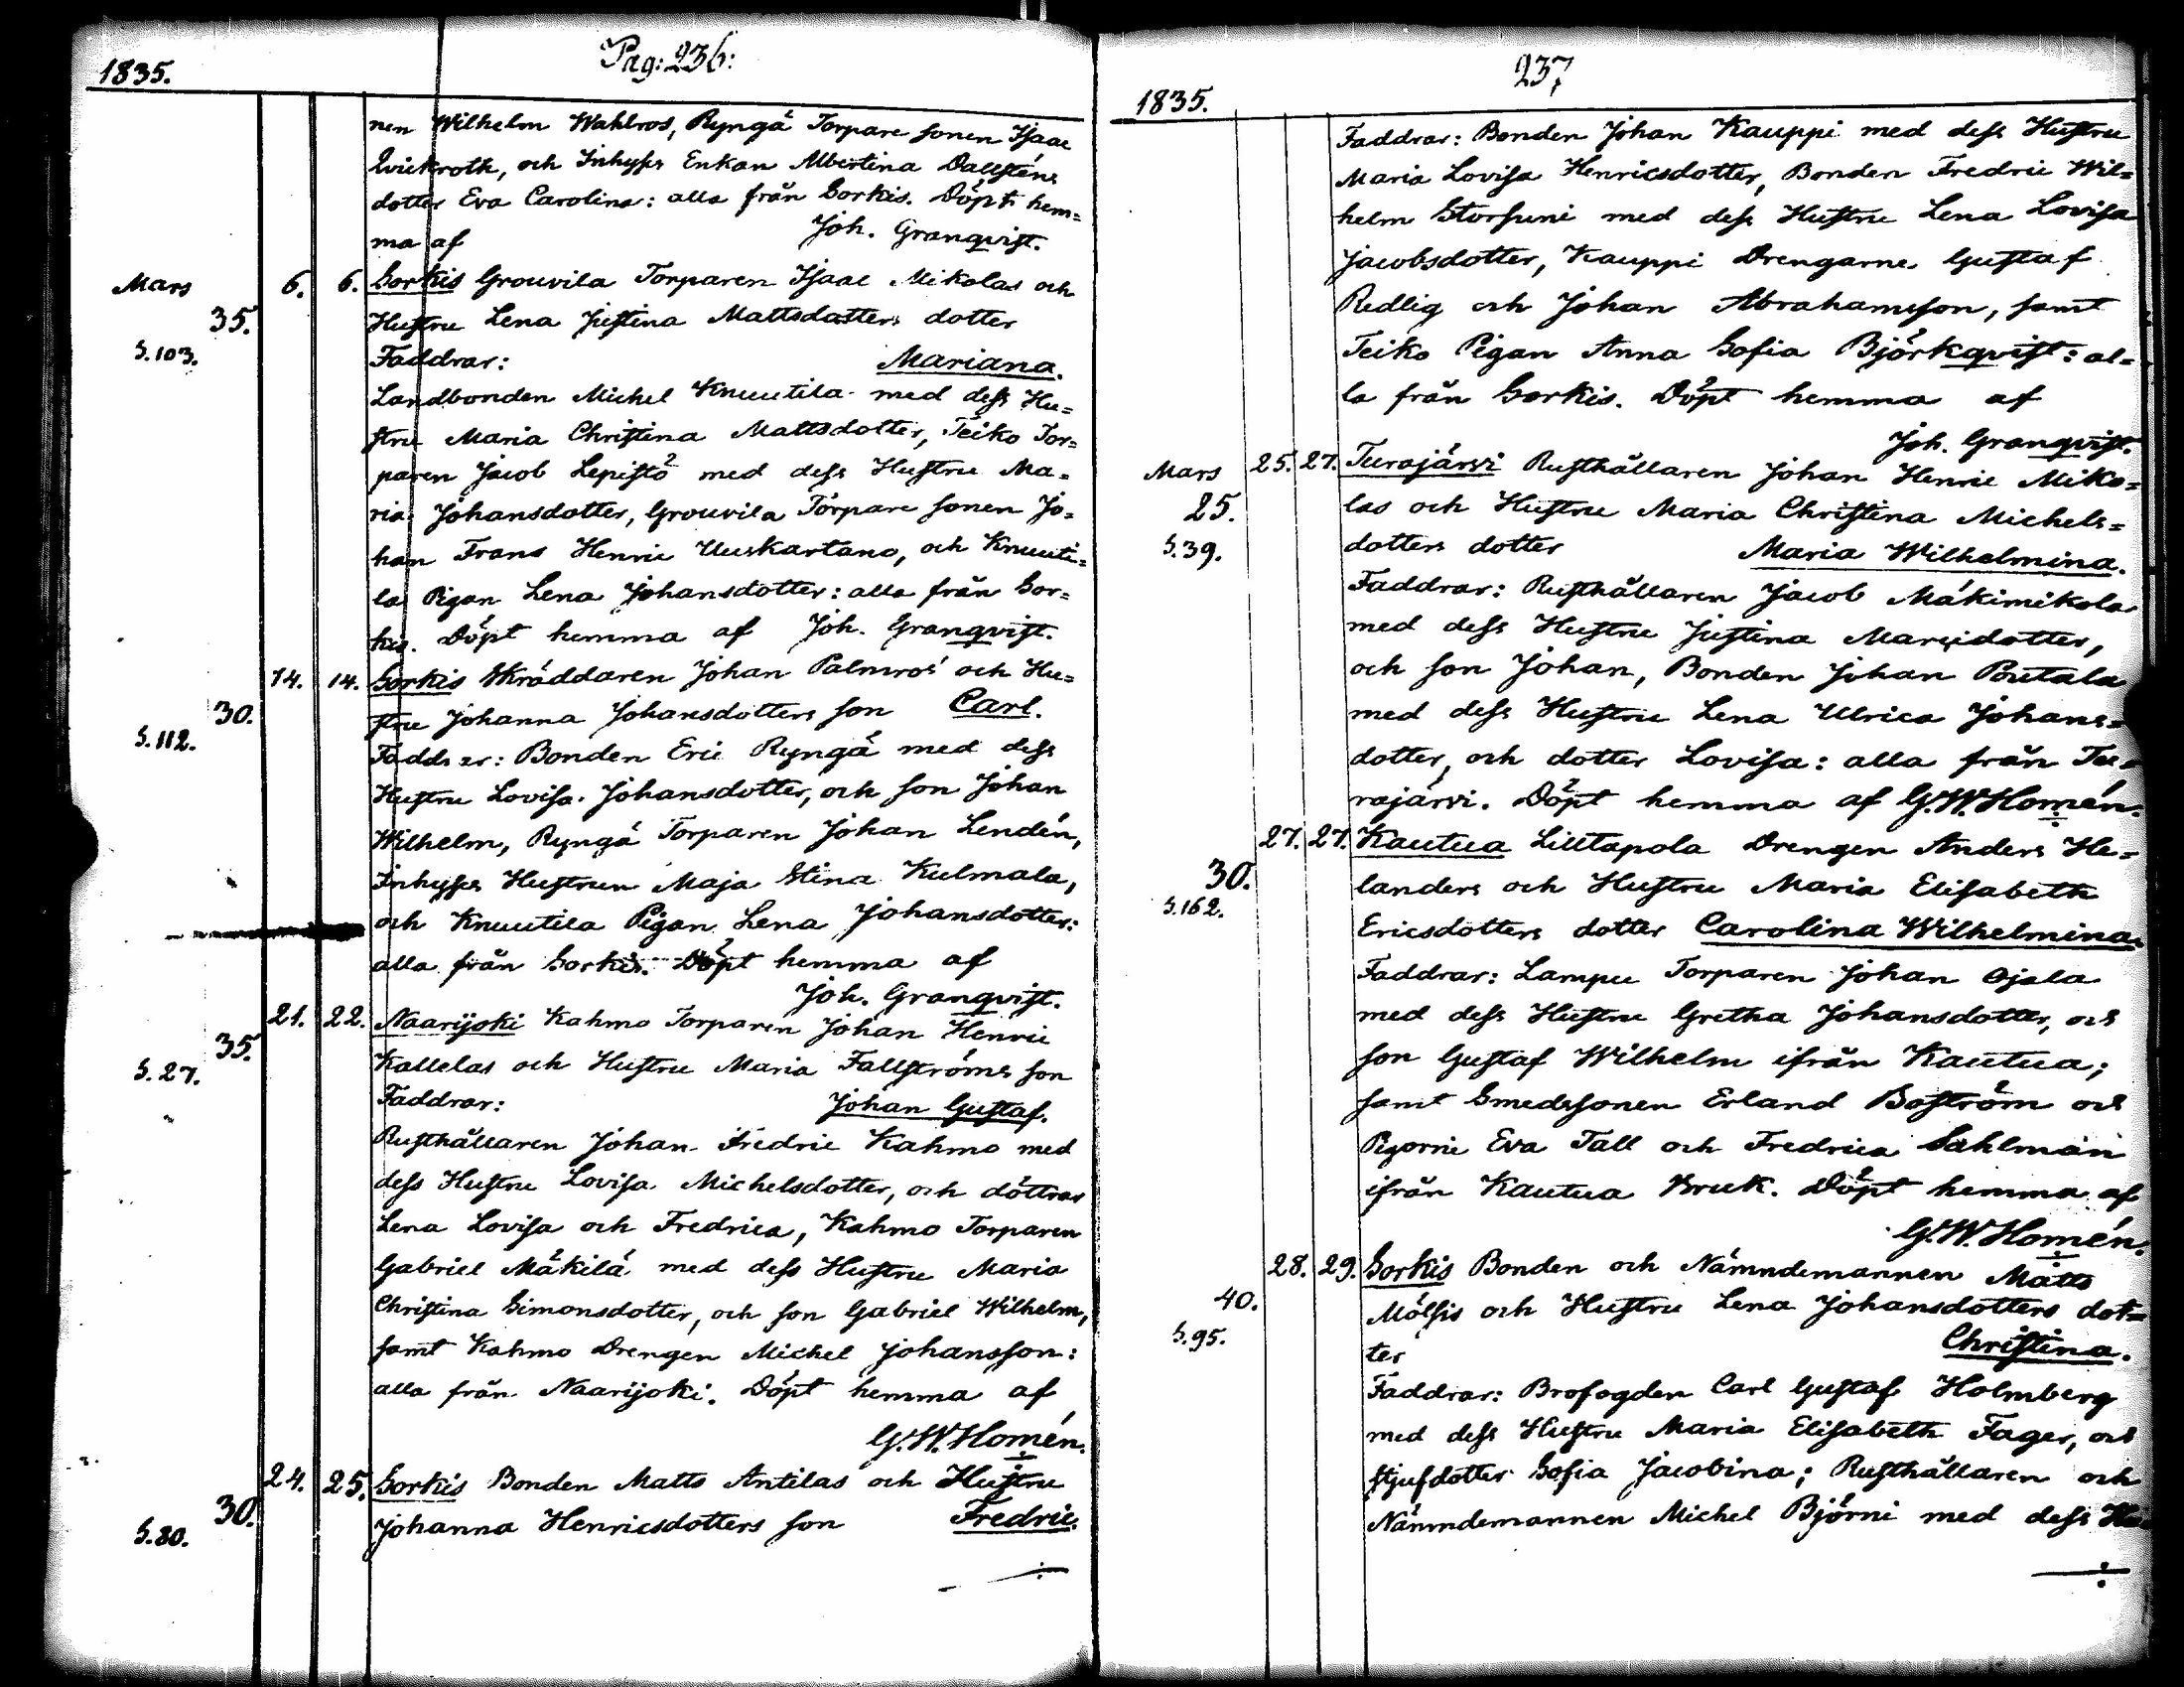 Pag: 236:
1835.
nen Wilhelm Wahlros, Ryngä Torpare sonen Isaac
Qvickroth, och Inhyses Enkan Albertina Dallsténs
dotter Eva Carolina: alla från Sorkis. Döpt hem=
ma af Joh. Granqvist.
Mars 6. 6. Sorkis Grouvila Torparen Isaac Mikolas och
35. Hustru Lena Justina Mattsdotters dotter
S.103. Faddrar: Mariana.
Landbonden Michel Knuutila med dess Hu=
stru Maria Christina Mattsdotter, Teiko Tor=
paren Jacob Lepistö med dess Hustru Ma=
ria Johansdotter, Grouvila Torpare sonen Jo=
han Frans Henric Uuskartano, och Knuuti=
la Pigan Lena Johansdotter: alla från Sor=
kis. Döpt hemma af Joh. Granqvist.
14. 14. Sorkis Skräddaren Johan Palmros och Hu=
30. stru Johanna Johansdotters son Carl.
S.112. Faddrar: Bonden Eric Ryngä med dess
Hustru Lovisa Johansdotter, och son Johan
Wilhelm, Ryngä Torparen Johan Lendén,
Inhyses Hustrun Maja Stina Kulmala,
och Knuutila Pigan Lena Johansdotter:
alla från Sorkis. Döpt hemma af
Joh. Granqvist.
21. 22. Naarijoki Kahmo Torparen Johan Henric
35. Kallelas och Hustru Maria Fallströms son
S.27. Faddrar: Johan Gustaf.
Rusthållaren Johan Fredric Kahmo med
dess Hustru Lovisa Michelsdotter, och döttrar
Lena Lovisa och Fredrica, Kahmo Torparen
Gabriel Mäkilä med dess Hustru Maria
Christina Simonsdotter, och son Gabriel Wilhelm,
samt Kahmo Drengen Michel Johansson:
alla från Naarijoki. Döpt hemma af
G.W. Homén.
24. 25. Sorkis Bonden Matts Antilas och Hustru
30. Johanna Henricsdotters son Fredric.
S.80.
237
1835.
Faddrar: Bonden Johan Kauppi med dess Hustru
Maria Lovisa Henricsdotter, Bonden Fredric Wil=
helm Storsuni med dess Hustru Lena Lovisa
Jacobsdotter, Kauppi Drengarne Gustaf
Redlig och Johan Abrahamsson, samt
Teiko Pigan Anna Sofia Björkqvist: al=
la från Sorkis. Döpt hemma af
Joh. Granqvist.
Mars 25. 27. Turajärvi Rusthållaren Johan Henric Miko=
25. las och Hustru Maria Christina Michels=
S.39. dotters dotter Maria Wilhelmina.
Faddrar: Rusthållaren Jacob Mäkimikola
med dess Hustru Justina Marcidotter,
och son Johan, Bonden Johan Butala
med dess Hustru Lena Ulrica Johans=
dotter, och dotter Lovisa: alla från Tu=
rajärvi. Döpt hemma af G.W. Homén.
27. 27. Kautua Lilltapola Drengen Anders He=
30. landers och Hustru Maria Elisabeth
S.162. Ericsdotters dotter Carolina Wilhelmina.
Faddrar: Lampu Torparen Johan Ojala
med dess Hustru Gretha Johansdotter, och
son Gustaf Wilhelm ifrån Kautua;
samt Smedssonen Erland Boström och
Pigorne Eva Tall och Fredrica Sahlman
ifrån Kautua Bruk. Döpt hemma af
G.W. Homén.
28. 29. Sorkis Bonden och Nämndemannen Matts
40. Mölsis och Hustru Lena Johansdotters dot=
S.95. ter Christina.
Faddrar: Brofogden Carl Gustaf Holmberg
med dess Hustru Maria Elisabeth Fager, och
stjufdotter Sofia Jacobina; Rusthållaren och
Nämndemannen Michel Björni med dess Hu=